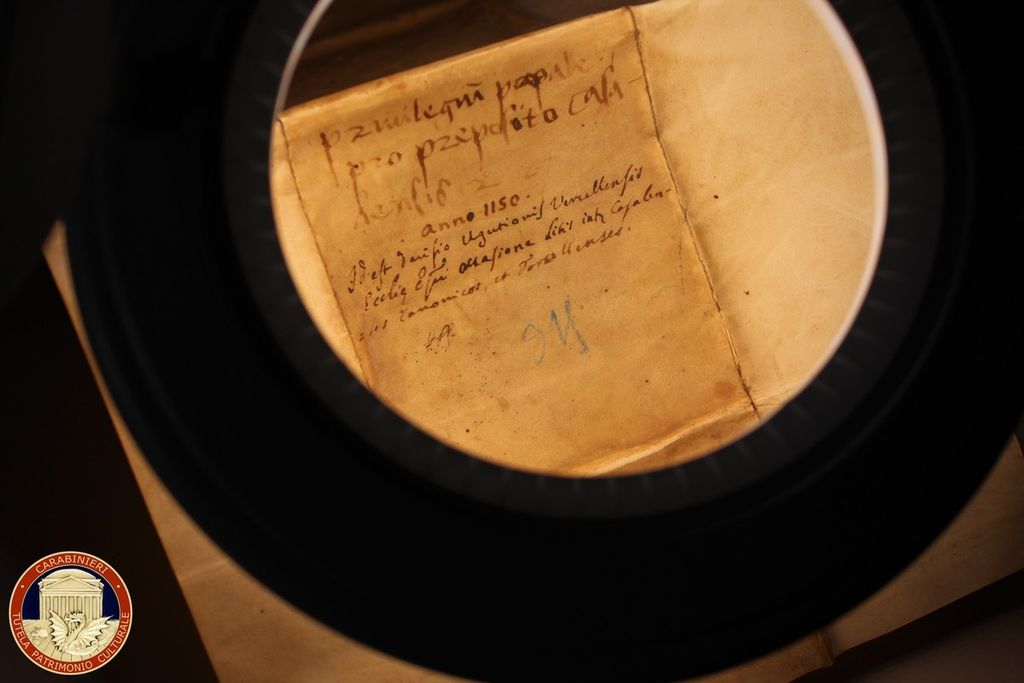 privilegiū papale
pro preposito Casa
lensis
anno 1150.
Id est decisio Ugutionis Vercellensis
Ecclię Epi occasione litis intr Casalen-
ses Canonicos, et
CARABINIERI
TUTELA PATRIMONIO CULTURALE